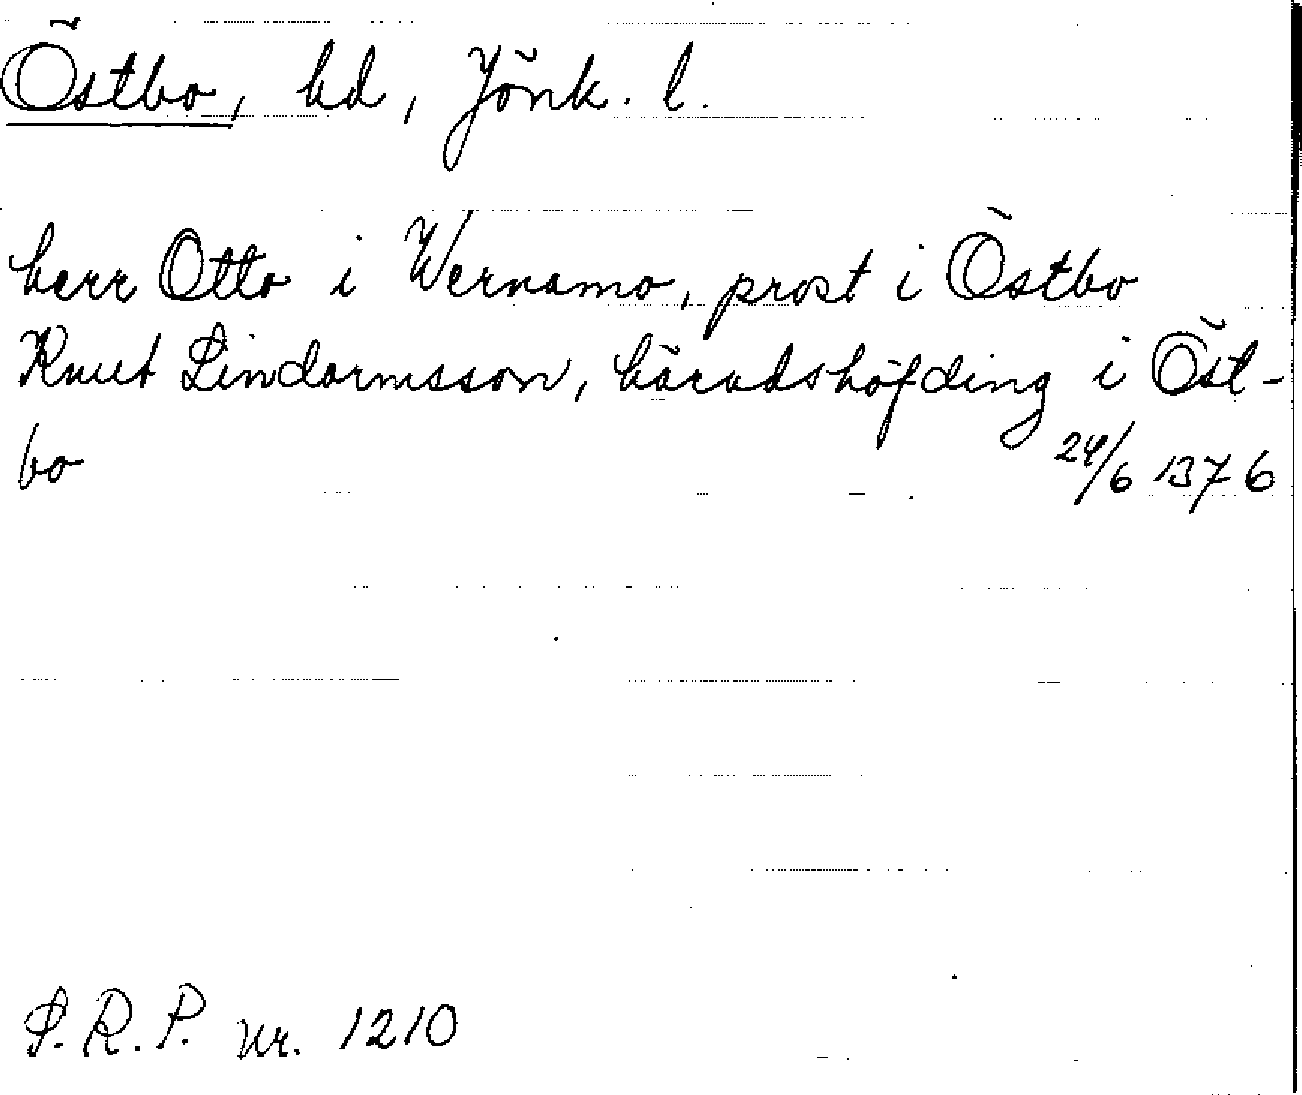 Östbo, hd, Jönk. l.
herr Otto i Wernamo, prost i Östbo
Knut Lindormsson, häradshöfding i Öst-
bo 24/6 1376
S. R. P. nr. 1210